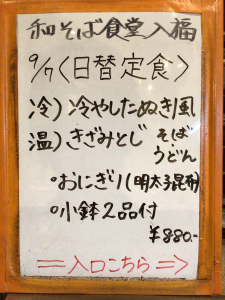 和そば食堂入福
9/7〈日替定食〉
冷)冷やしたぬき風
温)きざみとじ そば うどん
・おにぎり(明太子昆布)
・小鉢2品付
¥880-
⇒入口こちら⇒